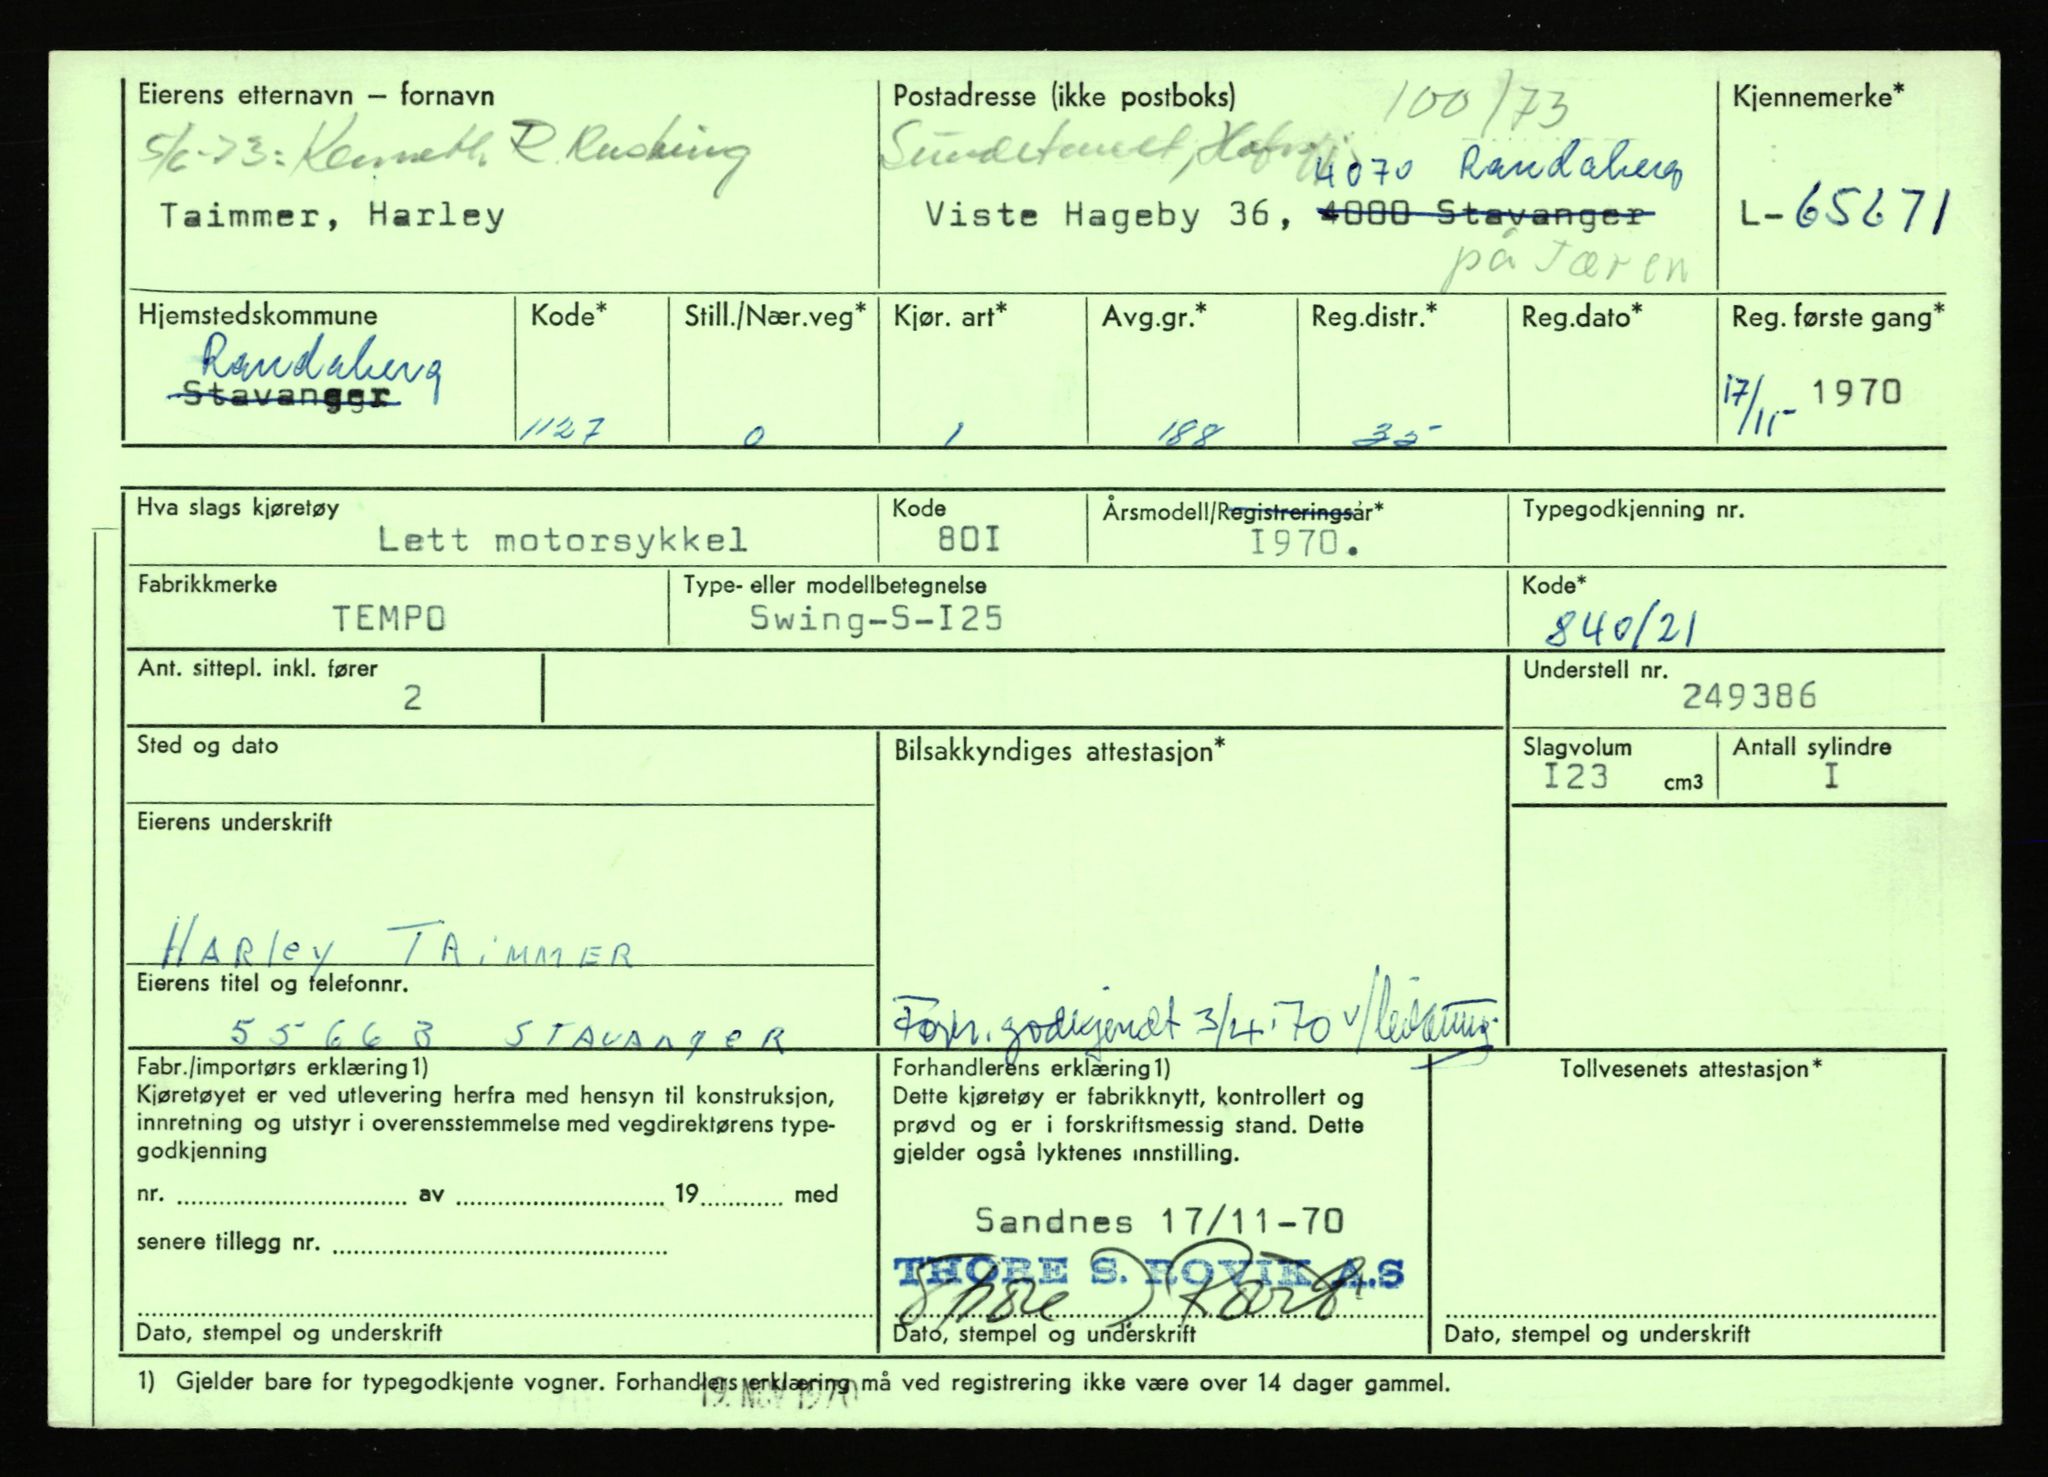 Eierens etternavn – fornavn
Postadresse (ikke postboks)
100/73
Kjennemerke*
Kenneth R. Rushing
4070 Randaberg
Taimmer, Harley
Viste Hageby 36, 4000 Stavanger
L-65671
på Jæren
Hjemstedskommune
Kode*
Still./Nær.veg*
Kjør. art*
Avg.gr.*
Reg.distr.*
Reg.dato*
Reg. første gang*
Randaberg
Stavanger
1127
0
1
188
35
17/11- 1970
Hva slags kjøretøy
Kode
Årsmodell/Registreringsår*
Typegodkjenning nr.
Lett motorsykkel
80I
I970.
Fabrikkmerke
Type- eller modellbetegnelse
Kode*
TEMPO
Swing-S-I25
840/21
Ant. sittepl. inkl. fører
Understell nr.
2
249386
Sted og dato
Bilsakkyndiges attestasjon*
Slagvolum
Antall sylindre
I23 cm3
I
Eierens underskrift
HARley TAiMMER
Eierens titel og telefonnr.
55663 STAVANgER
godkjendt 3/4-70 v/
Fabr./importørs erklæring1)
Kjøretøyet er ved utlevering herfra med hensyn til konstruksjon,
innretning og utstyr i overensstemmelse med vegdirektørens type-
godkjenning
nr. .............. av .............. 19........ med
senere tillegg nr. ..............
Dato, stempel og underskrift
Forhandlerens erklæring1)
Dette kjøretøy er fabrikknytt, kontrollert og
prøvd og er i forskriftsmessig stand. Dette
gjelder også lyktenes innstilling.
Sandnes 17/11-70
THORE S. ROVIK A.S
Dato, stempel og underskrift
Tollvesenets attestasjon*
Dato, stempel og underskrift
1) Gjelder bare for typegodkjente vogner. Forhandlers erklæring må ved registrering ikke være over 14 dager gammel.
19. NOV 1970